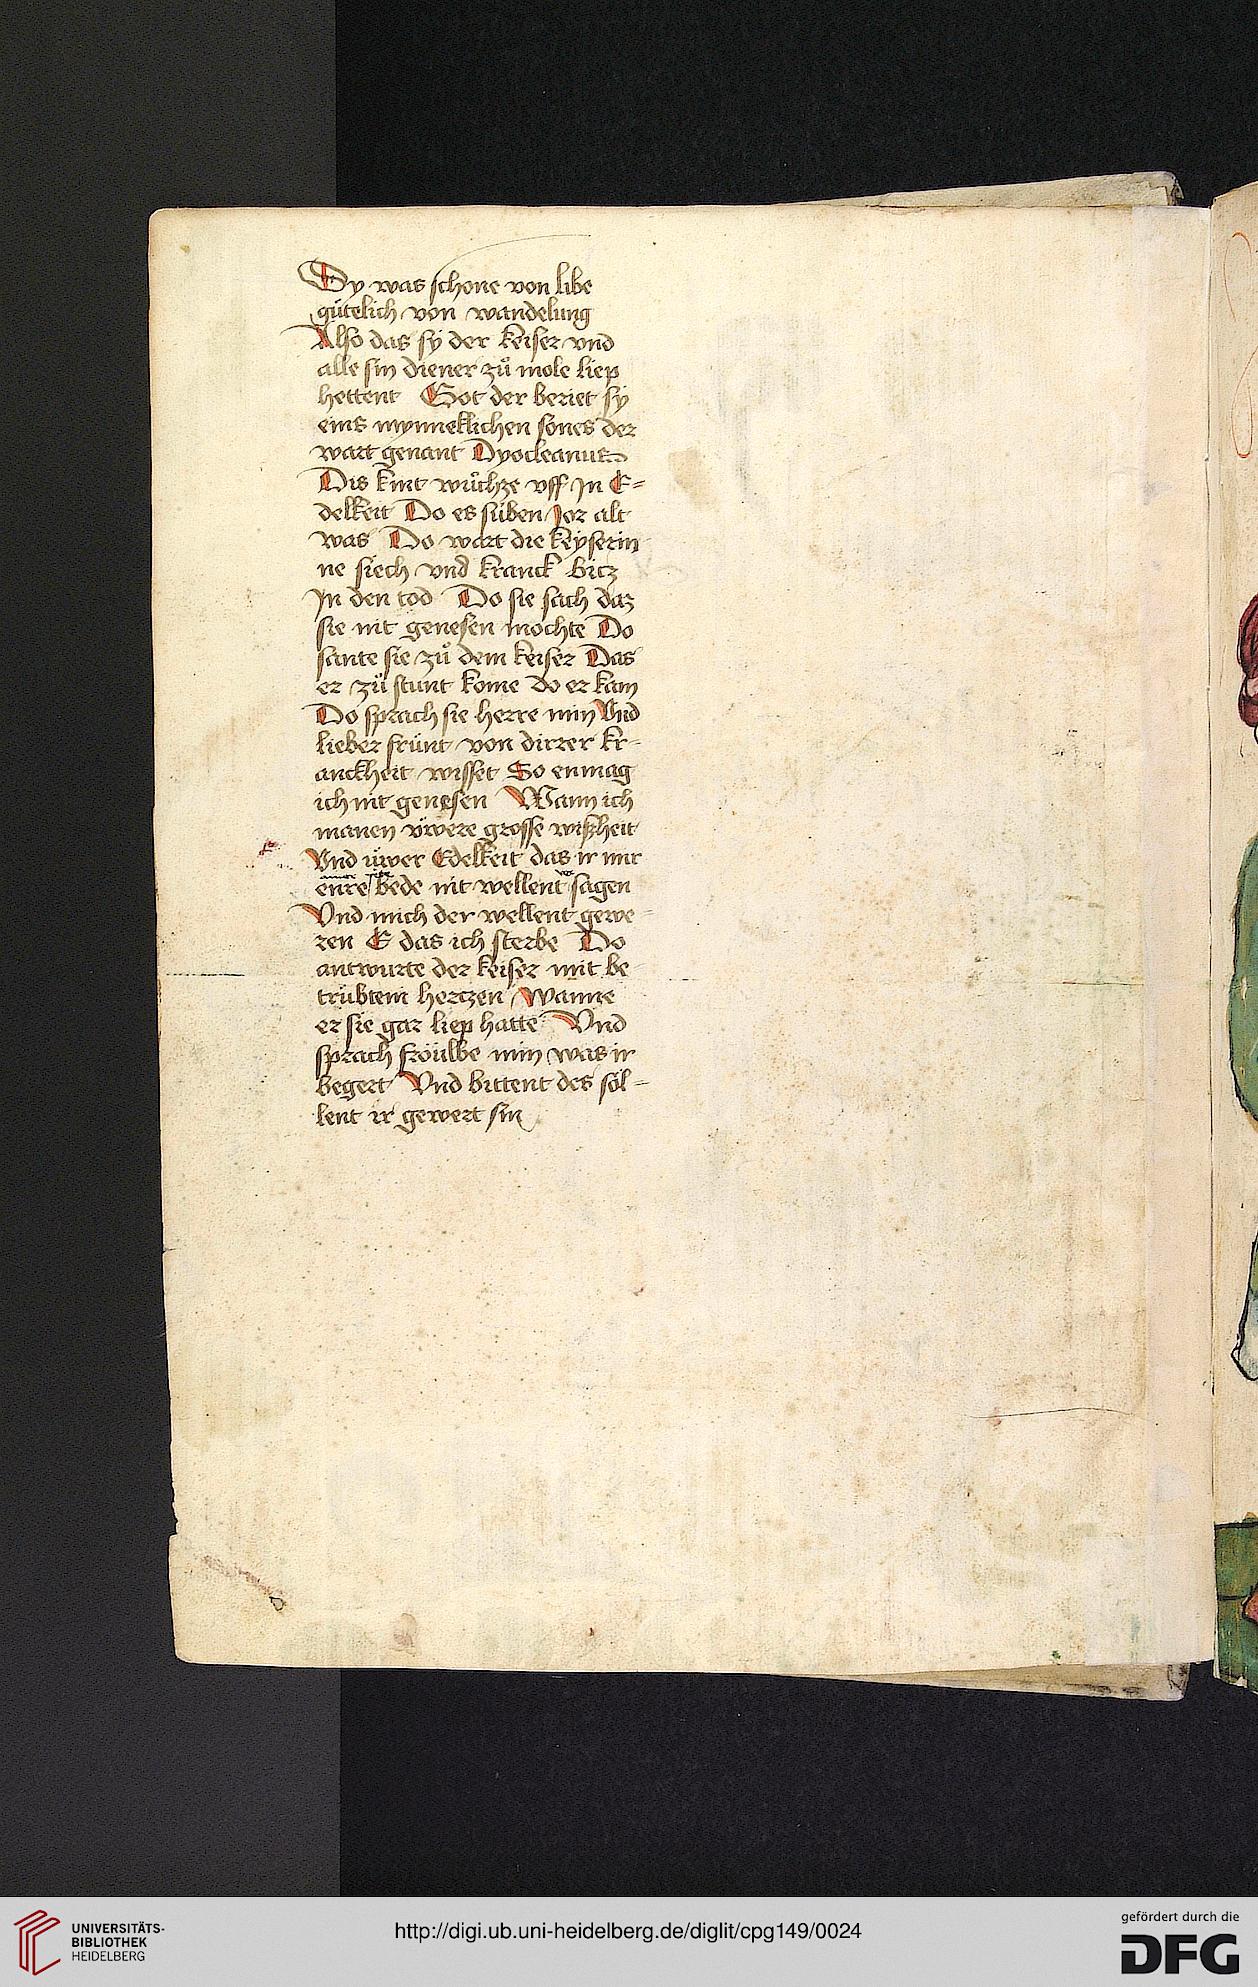 Dy was schone von libe
gütelich von wandelung
Also das sy der keiser vnd
alle sin diener zuͦ mole liep
hettent Got der beriet sy
eins mynneklichen sones der
wart genant Dyocleanus
Dis kint wuͦchze vff in E=
delkeit Do es süben Jor alt
was Do wart die keyserin
ne siech vnd kranck bitz
In den tod Do sie sach daz
sie nit genesen mochte Do
sante sie zuͦ dem keiser Das
er zuͦ stunt kome do er kam
Do sprach sie herre min Vnd
lieber frünt von dirrer kr-
anckheit wisset So enmag
ich nit genesen Wann ich
manen üwere grosse wißheit
Vnd üwer Edelkeit das ir mir
bede nit wellent ver sagen
Vnd mich der wellent gewe-
ren E das ich sterbe Do
antwurte der keiser mit be
trübtem hertzen Wanne
er sie gar liep hatte Vnd
sprach min was ir
begert Vnd bittent des söl=
lent ir gewert sin
UNIVERSITÄTS-
BIBLIOTHEK
HEIDELBERG
http://digi.ub.uni-heidelberg.de/diglit/cpg149/0024
gefördert durch die
DFG